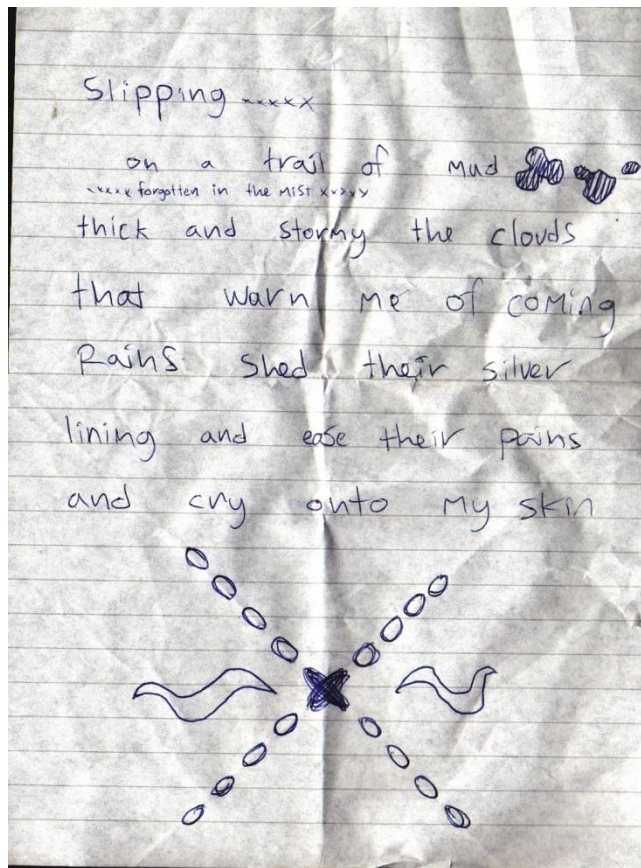 Slipping xxxxx
on a trail of mud
xxxx forgotten in the mist xxxxx
thick and stormy the clouds
that warn me of coming
Rains shed their silver
lining and ease their pains
and cry onto my skin